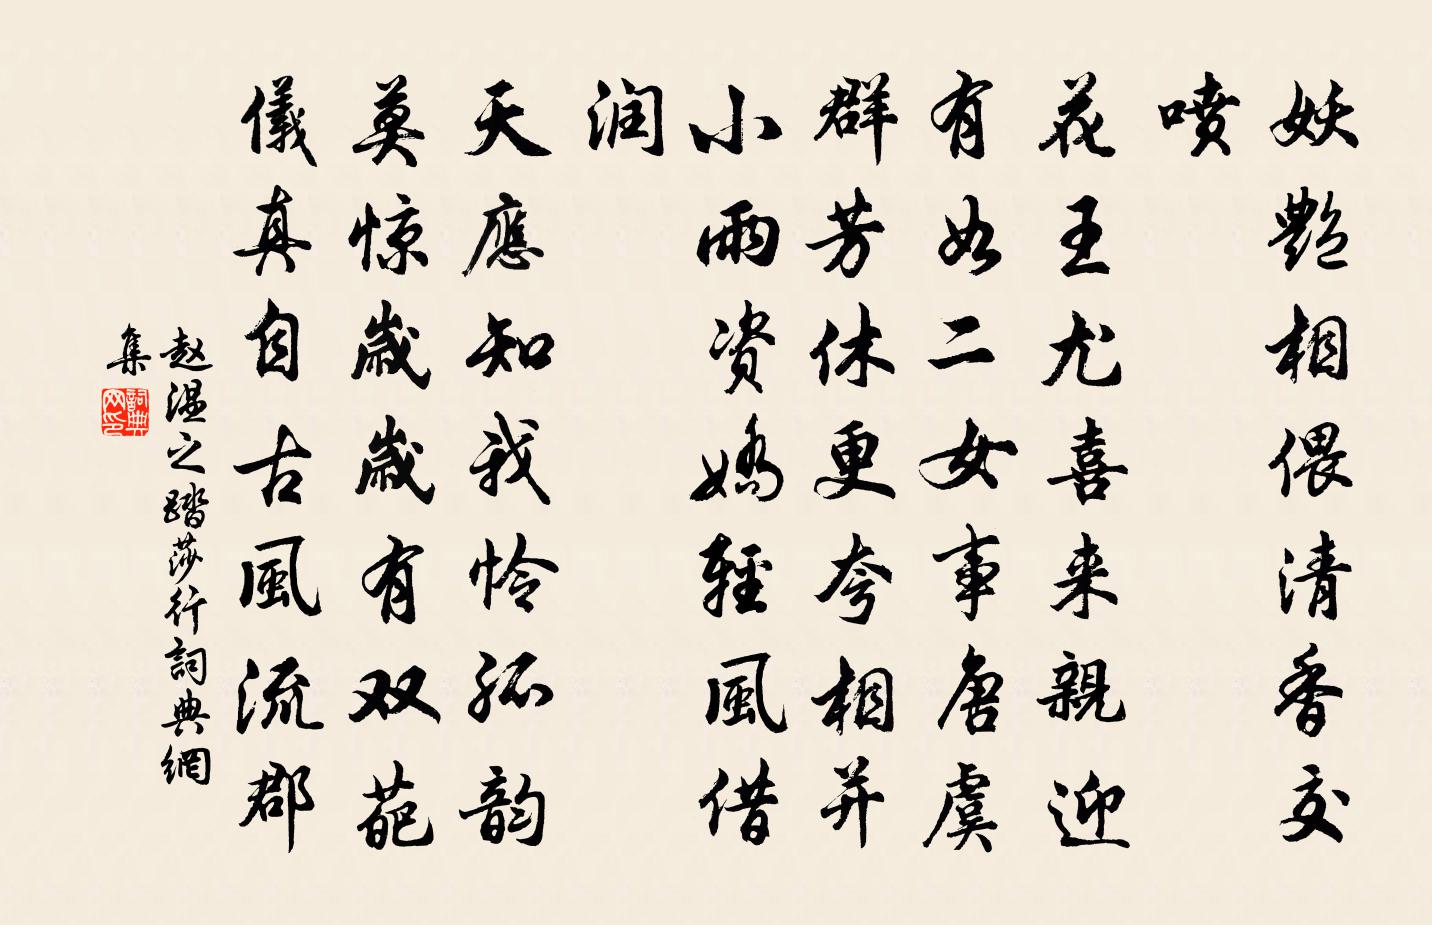 妖艷相偎清香交
喷
花王尤喜来親迎
有如二女事唐虞
群芳休更夸相并
小雨资嬌輕風借
润
天應知我怜孤韵
莫惊歲歲有双葩
儀真自古風流郡
赵温之踏莎行詞典網
集
詞典
网印